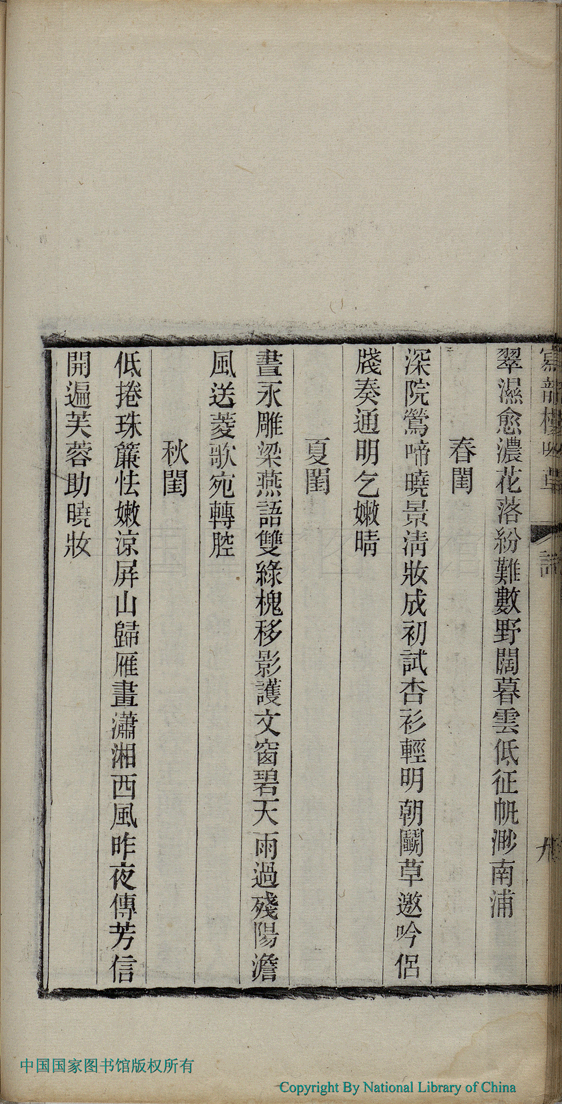 翠濕愈濃花落紛難數野闊暮雲低征帆渺南浦
春閨
深院鶯啼曉景淸妝成初試杏衫輕明朝鬭草邀吟侶
牋奏通明乞嫩晴
夏閨
晝永雕梁燕語雙綠槐移影護文窗碧天雨過殘陽澹
風送菱歌宛轉腔
秋閨
低捲珠簾怯嫩涼屏山歸雁畫瀟湘西風昨夜傳芳信
開遍芙蓉助曉妝
中国国家图书馆版权所有
Copyright By National Library of China